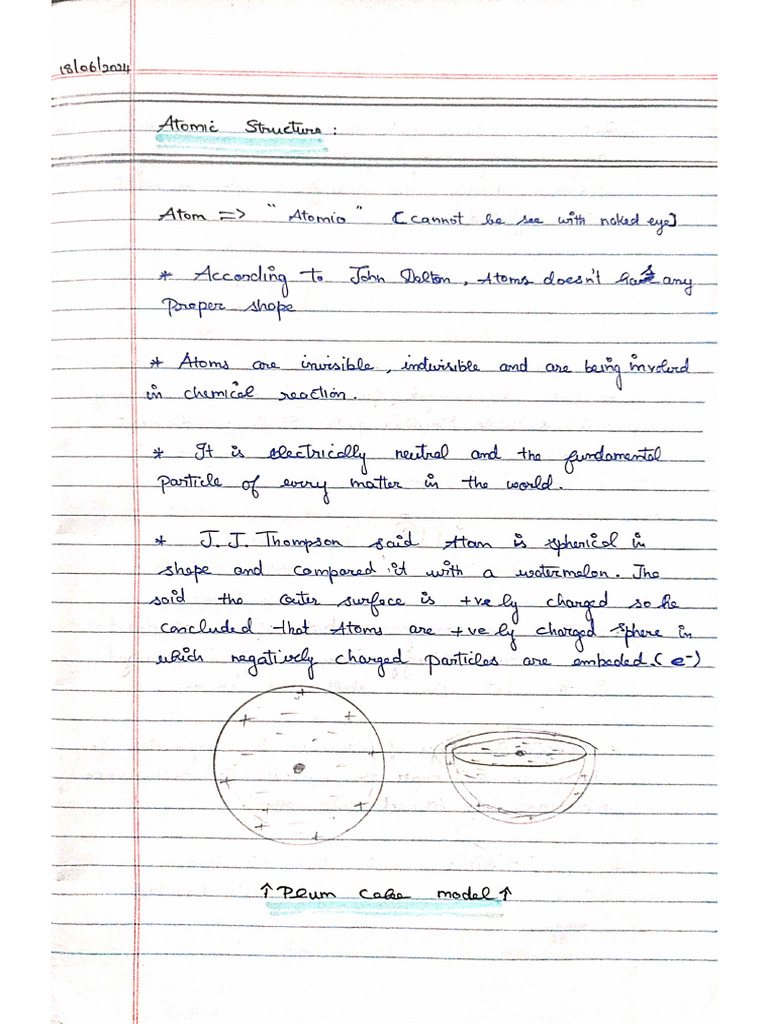 18/06/2024
Atomic Structure:
Atom => "Atomio" [cannot be see with naked eye]
* According to John Dalton, Atoms doesn't has any
Proper shape
* Atoms are invisible, indivisible and are being involved
in chemical reaction.
* It is electrically neutral and the fundamental
particle of every matter in the world.
* J. J. Thompson said Atom is spherical in
shape and compared it with a watermelon. The
said the outer surface is +ve ly charged so he
concluded that Atoms are +ve ly charged sphere in
which negatively charged particles are embeded. (e-)
↑ Plum cake model ↑